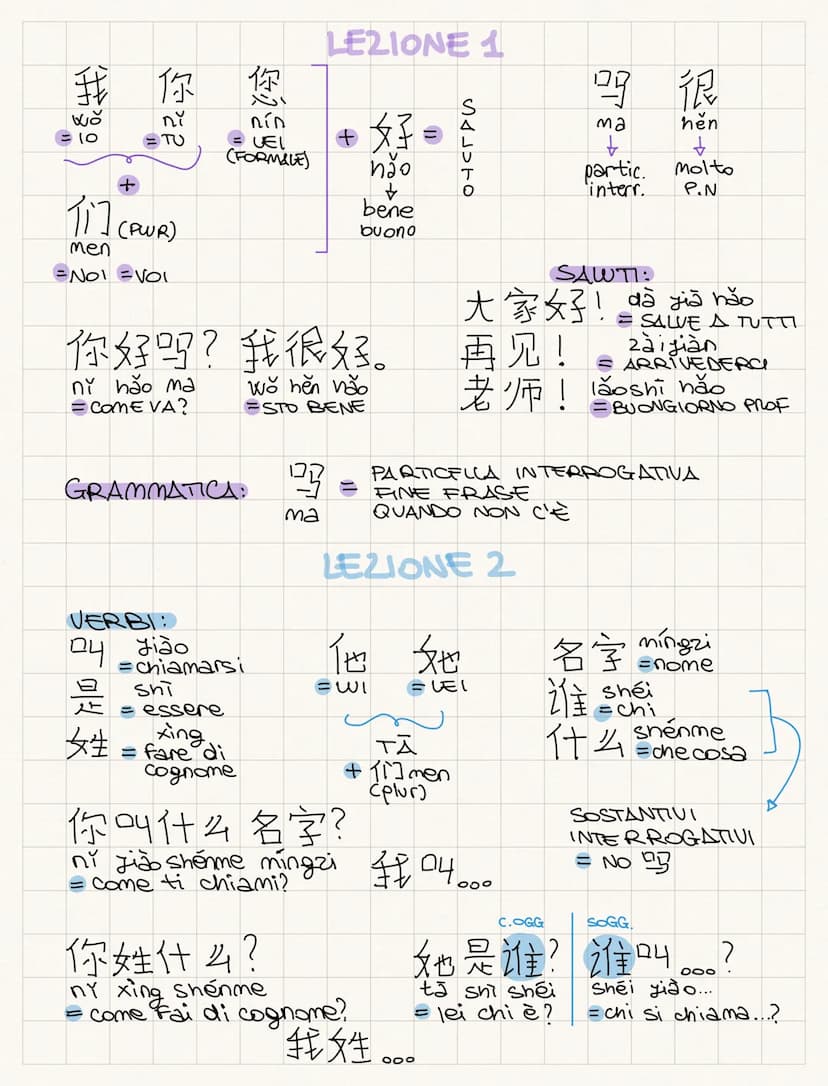 LEZIONE 1
我 你 您
wǒ nǐ nín
= IO = TU = LEI
(FORMALE)
+
们 (PLUR)
men
= NOI = VOI
+ 好 = SALUTO
hǎo
↓
bene
buono
吗 很
ma hěn
↓ ↓
partic. molto
interr. P.N
你好吗? 我很好。
nǐ hǎo ma wǒ hěn hǎo
= COME VA? = STO BENE
SALUTI:
大家好! dà jiā hǎo
= SALVE A TUTTI
再见! zàijiàn
= ARRIVEDERCI
老师! lǎoshī hǎo
= BUONGIORNO PROF
GRAMMATICA: 吗 = PARTICELLA INTERROGATIVA
ma FINE FRASE
QUANDO NON C'È
LEZIONE 2
VERBI:
叫 jiào
= chiamarsi
是 shì
= essere
姓 xìng
= fare di
cognome
他 她
= LUI = LEI
TĀ
+ 们 men
(plur)
名字 míngzi
= nome
谁 shéi
= chi
什么 shénme
= che cosa
SOSTANTIVI
INTERROGATIVI
= NO 吗
你叫什么名字?
nǐ jiào shénme míngzi
= come ti chiami?
我叫...
你姓什么?
nǐ xìng shénme
= come fai di cognome?
我姓...
C.OGG
她是谁?
tā shì shéi
= lei chi è?
SOGG.
谁叫...?
shéi jiào...
= chi si chiama...?